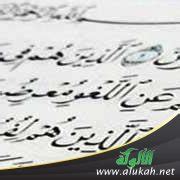 الَّذِينَ هُمْ
عَنِ اللَّغْوِ مُعْرِضُو
الَّذِينَ هُمْ
الألوكة
www.alukah.net